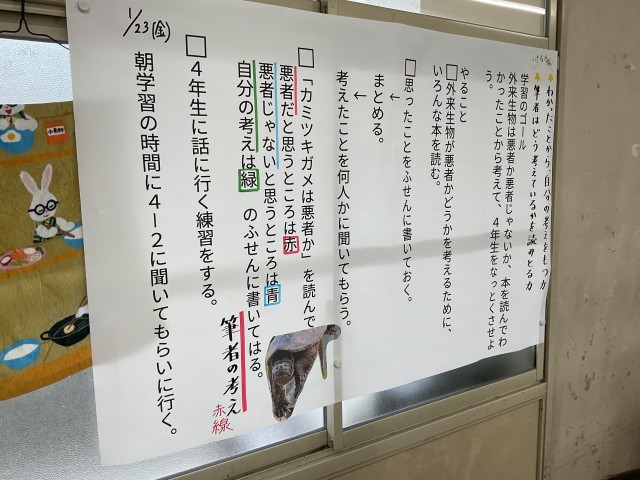 ★わかったことから、自分の考えをもつ力
★筆者はどう考えているかを読みとる力
学習のゴール
外来生物は悪者か悪者じゃないか、本を読んでわ
かったことから考えて、4年生をなっとくさせよ
う。
やること
□外来生物が悪者かどうかを考えるために、
いろんな本を読む。
□思ったことをふせんに書いておく。
←
まとめる。
←
考えたことを何人かに聞いてもらう。
□「カミツキガメは悪者か」を読んで
悪者だと思うところは赤
悪者じゃないと思うところは青
自分の考えは緑 のふせんに書いてはる。
筆者の考え
赤線
□4年生に話に行く練習をする。
1/23(金)
朝学習の時間に4-2に聞いてもらいに行く。